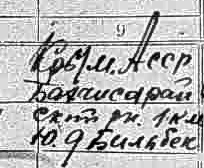 9
Крым. Асср
Бахчисарай
ский рн. 1 км
Ю. д Бильбек